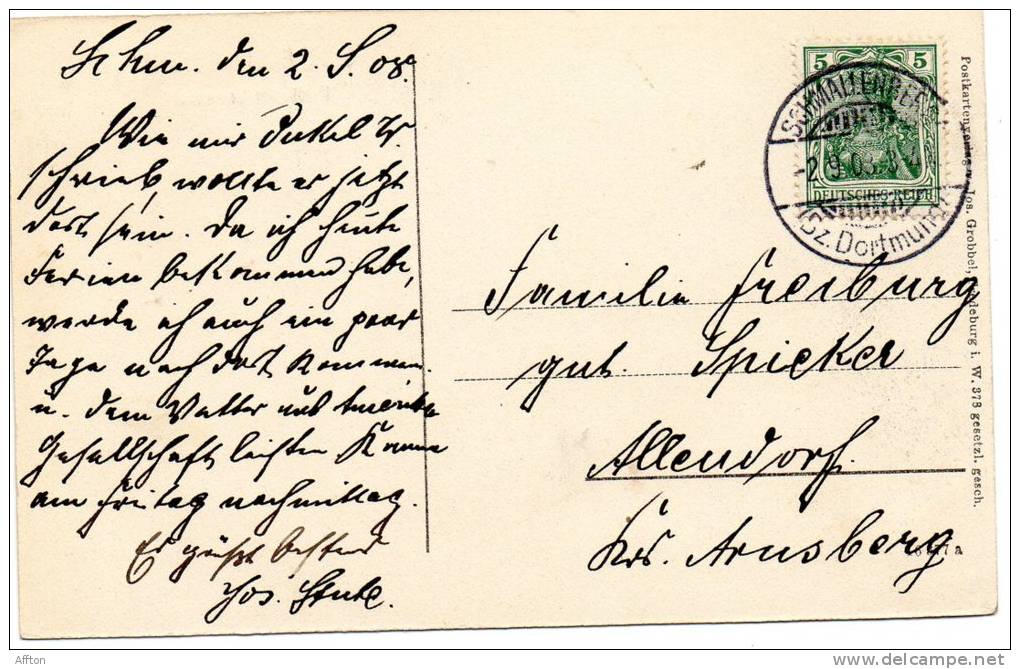 Schm. den 2. S. 08.
Wie mir Onkel W.
schrieb, wollte er jetzt
dort sein. Da ich heute
Ferien bekommen habe,
werde ich auch ein paar
Tage nach dort kommen
u. dem Vetter aus Amerika
Gesellschaft leisten. Komme
am Freitag nachmittag.
Es grüßt bestens
Jos.
5 5
DEUTSCHES REICH
SCHMALLENBERG
2 9 08. 8
(Bz. Dortmund)
Familie Freiburg
gnt. Spieker
Allendorf.
Krs. Arnsberg
Postkartenverlag v. Jos. Grobbel, Fredeburg i. W. 373 gesetzl. gesch.
Affton
http://www.delcampe.net